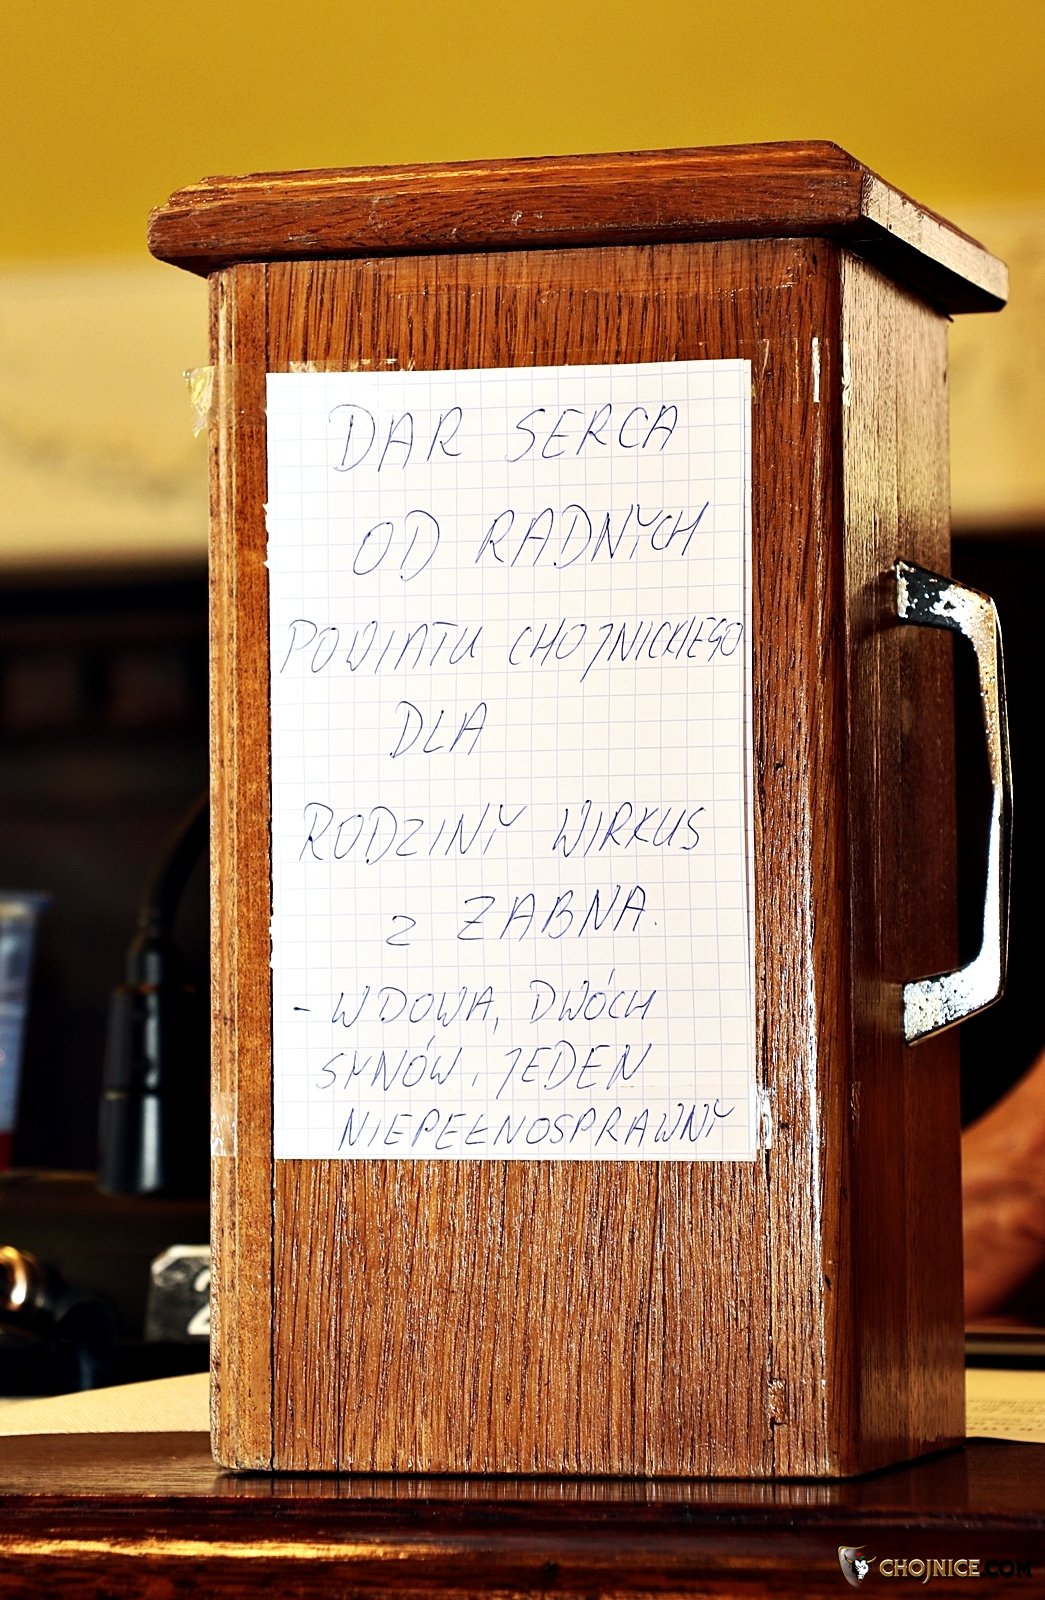 DAR SERCA
OD RADNYCH
POWIATU CHOJNICKIEGO
DLA
RODZINY WIRKUS
z ZABNA.
- WDOWA, DWÓCH
SYNÓW, JEDEN
NIEPEŁNOSPRAWNY
2
CHOJNICE.COM